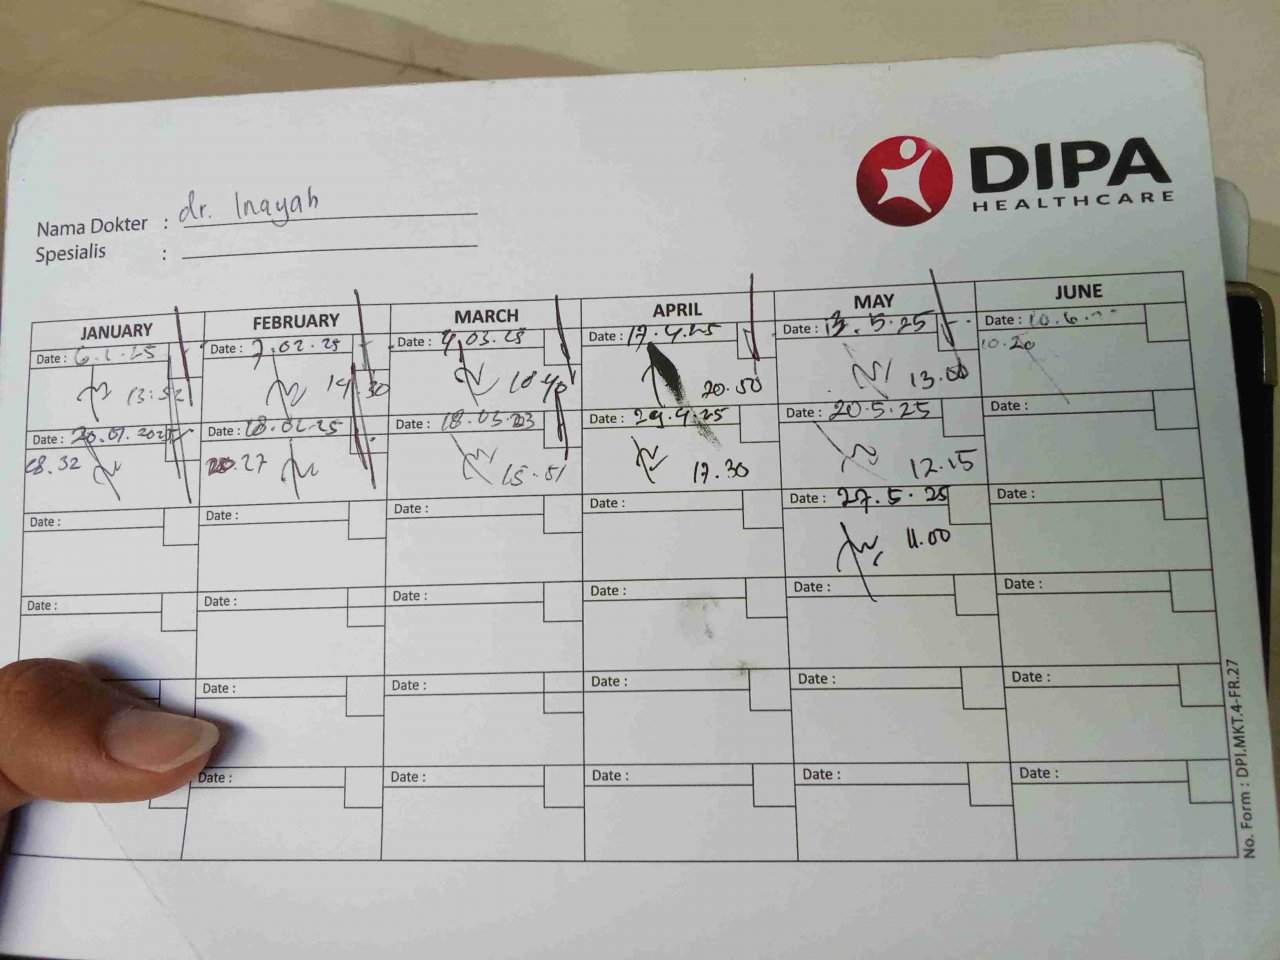 DIPA
HEALTHCARE
Nama Dokter : dr. Inayah
Spesialis :
JANUARY FEBRUARY MARCH APRIL MAY JUNE
Date : 6.1.25 Date : 7.02.25 Date : 4.03.25 Date : 17.4.25 Date : 13.5.25 Date : 10.6.
13:52 14.30 18.40 20.50 13.00 10.20
Date : 20.01.2025 Date : 18.02.25 Date : 18.03. Date : 29.4.25 Date : 20.5.25 Date :
18.32 .27 15.51 17.30 12.15
Date : Date : Date : Date : Date : 27.5.25 Date :
11.00
Date : Date : Date : Date : Date : Date :
Date : Date : Date : Date : Date :
Date : Date : Date : Date : Date :
No. Form : DPI.MKT.4-FR.27